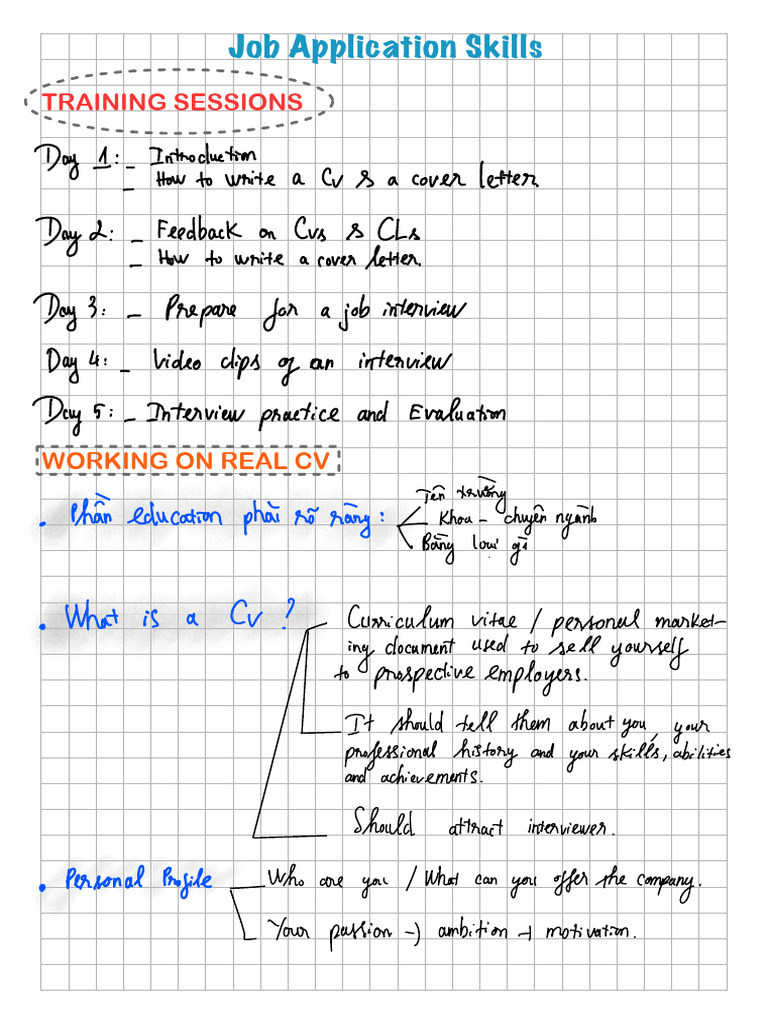 Job Application Skills
TRAINING SESSIONS
Day 1: - Introduction
- How to write a CV & a cover letter
Day 2: - Feedback on CVs & CLs
- How to write a cover letter.
Day 3: - Prepare for a job interview
Day 4: - Video clips of an interview
Day 5: - Interview practice and Evaluation
WORKING ON REAL CV
• Phần education phải rõ ràng:
Tên trường
Khoa - chuyên ngành
Bằng loại gì
• What is a CV?
Curriculum vitae / personal market-
ing document used to sell yourself
to prospective employers.
It should tell them about you, your
professional history and your skills, abilities
and achievements.
Should attract interviewer.
• Personal Profile
Who are you / What can you offer the company.
Your passion → ambition → motivation.